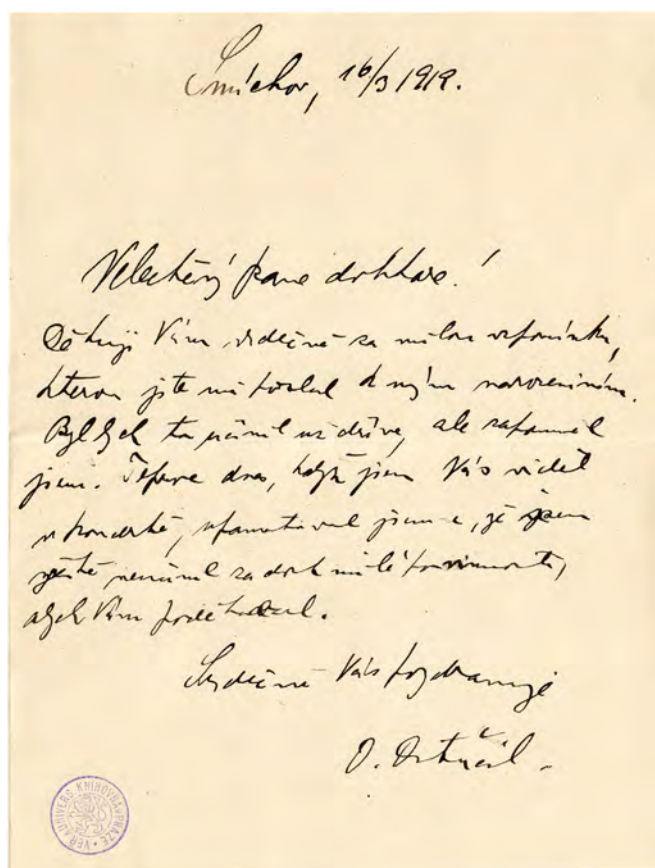 Smíchov, 16/3 1919.
Velectěný pane doktore!
Děkuji Vám srdečně za milou vzpomínku,
kterou jste mi poslal k mým narozeninám.
Byl bych to učinil už dříve, ale zapomněl
jsem. Teprve dnes, když jsem Vás viděl
v koncertě, upamatoval jsem se, že jsem
ještě neučinil za dost milé povinnosti,
abych Vám poděkoval.
Srdečně Vás pozdravuje
O. Ostrčil.
VEŘ. A UNIVERS. KNIHOVNA V PRAZE